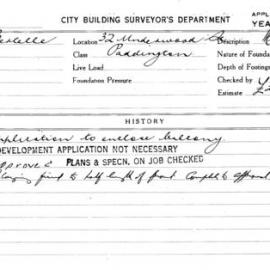 CITY BUILDING SURVEYOR'S DEPARTMENT
APPL
YEA
Location 32 Underwood St Description
Class Paddington Nature of Founda
Live Load Depth of Footing
Foundation Pressure Checked by
Estimate
HISTORY
application to enclose balcony
DEVELOPMENT APPLICATION NOT NECESSARY
approved PLANS & SPECN, ON JOB CHECKED
to half length of front